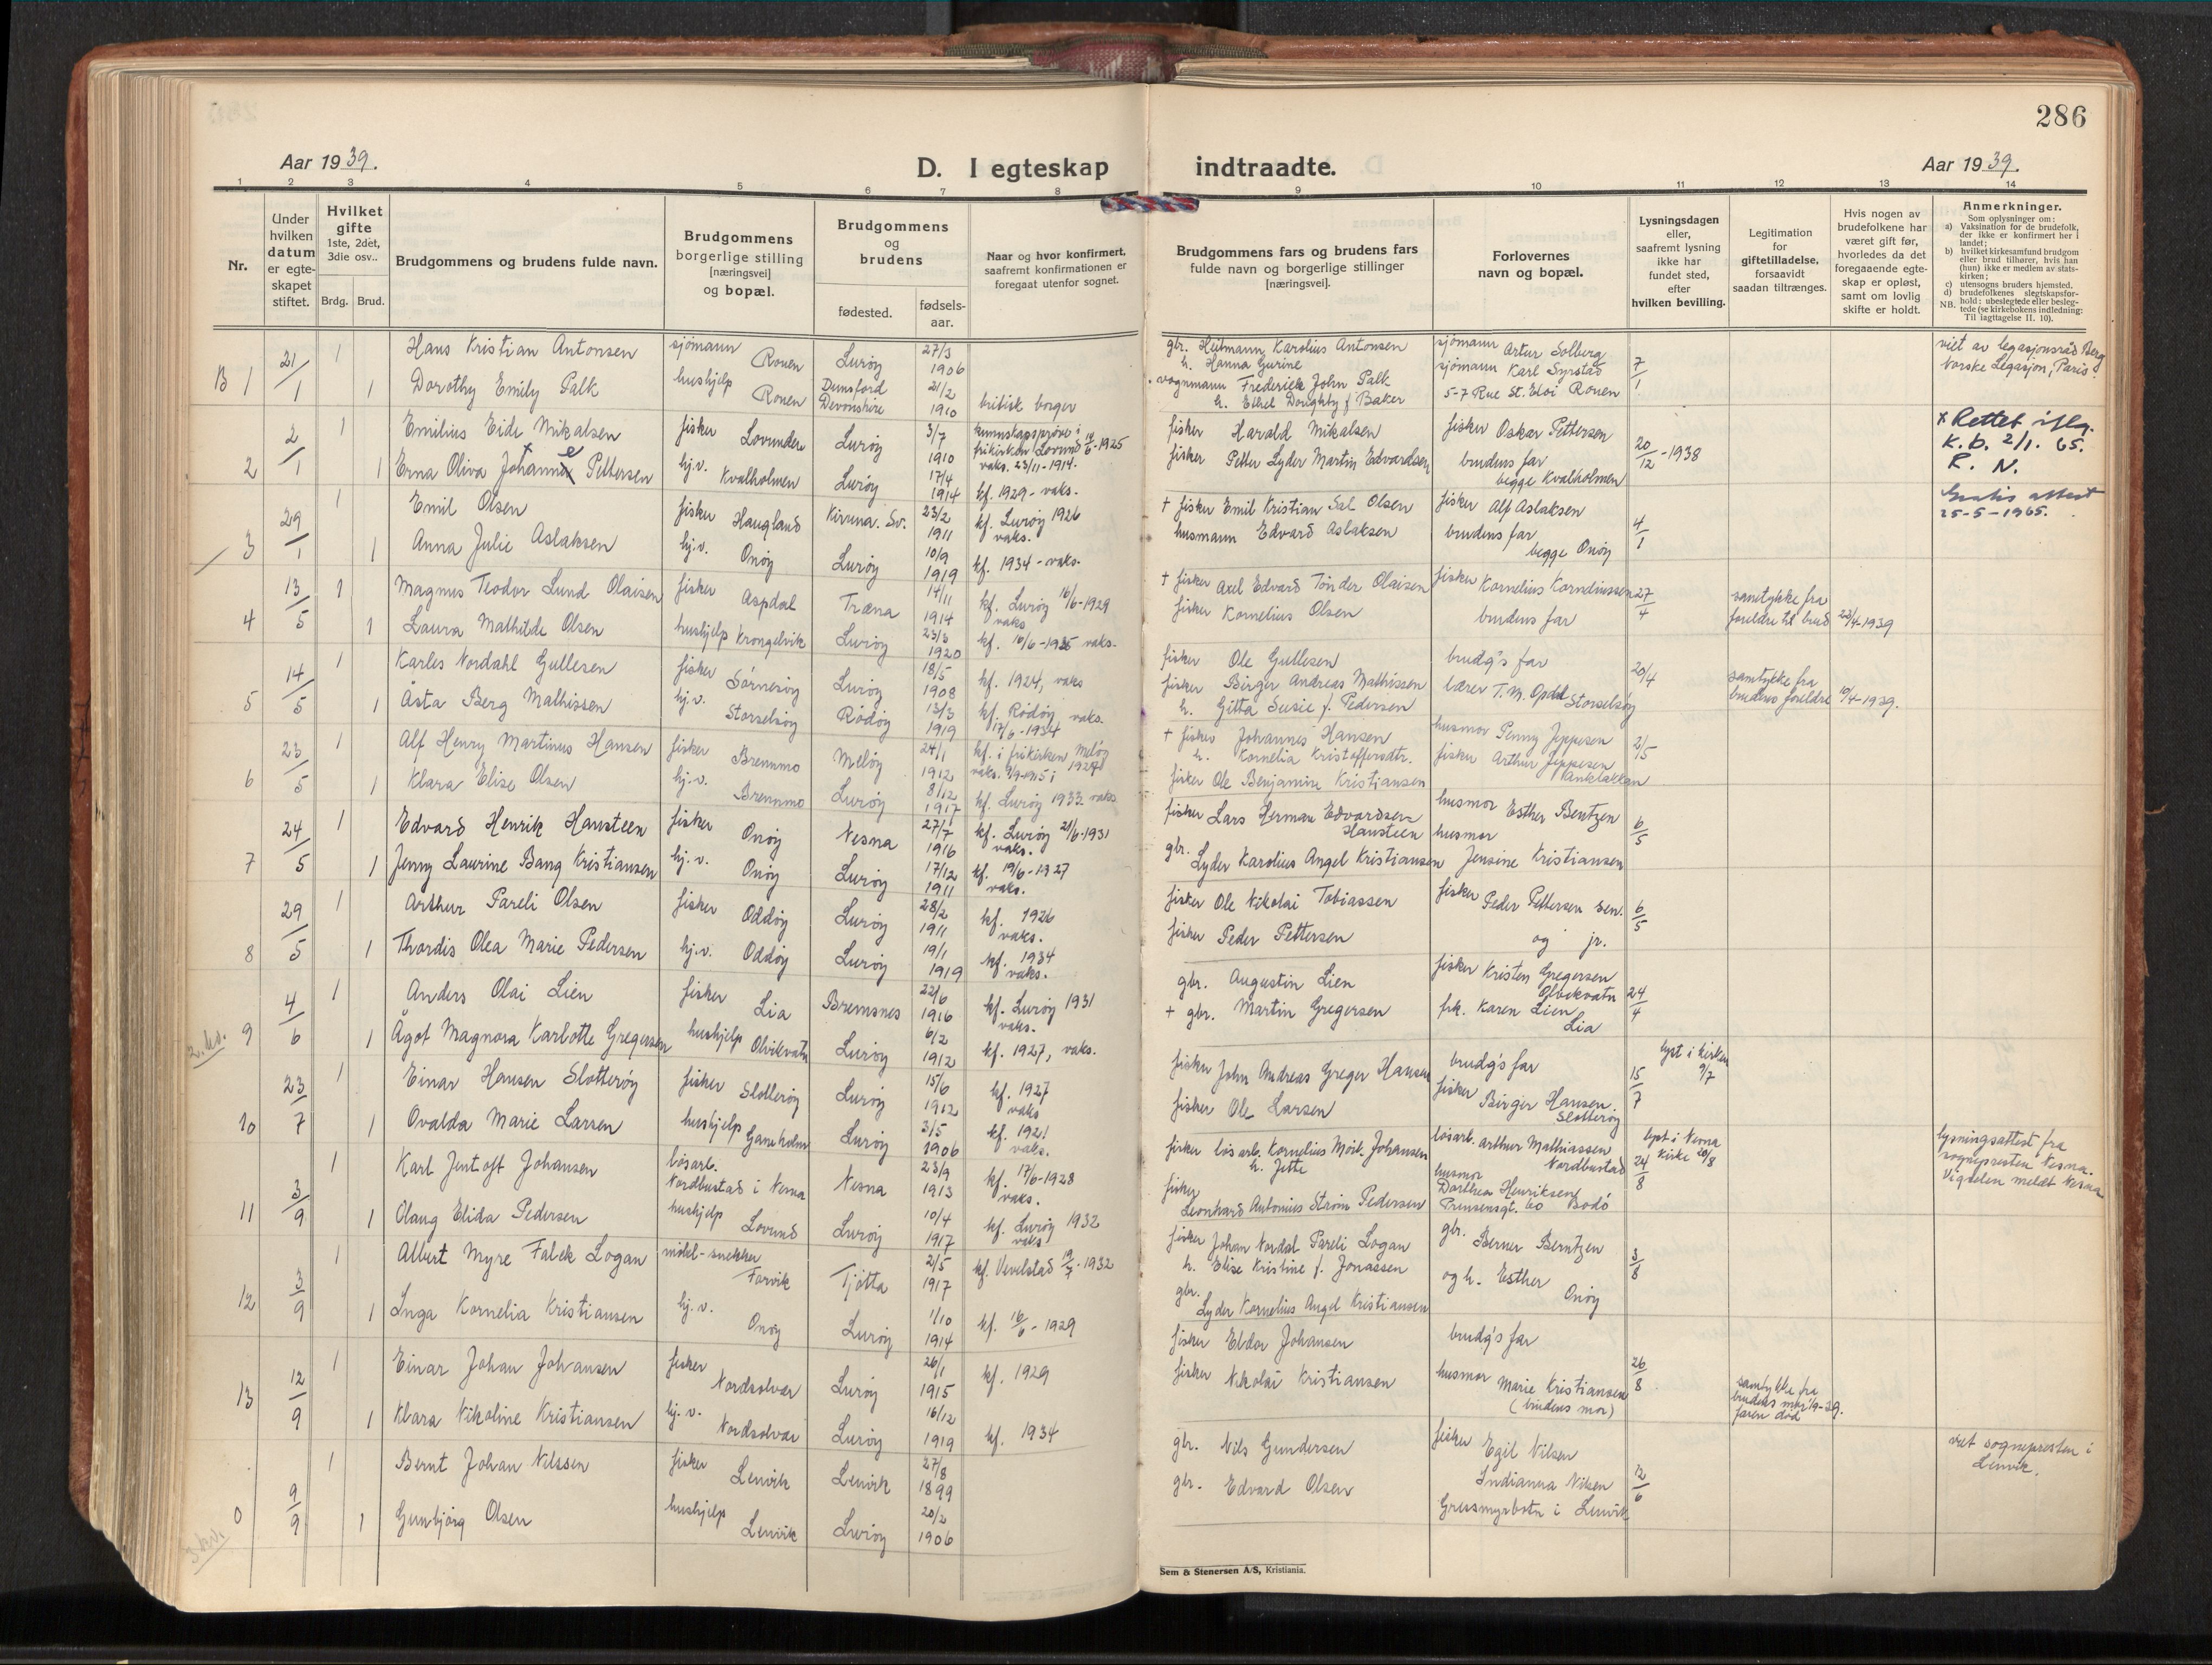 286
Aar 1939.
D. I egteskap indtraadte.
Aar 1939.
1 2 3 4 5 6 7 8 9 10 11 12 13 14
Nr.
Under hvilken datum er egte-skapet stiftet.
Hvilket gifte 1ste, 2det, 3die osv..
Brdg. Brud.
Brudgommens og brudens fulde navn.
Brudgommens borgerlige stilling [næringsvei] og bopæl.
Brudgommens og brudens
fødested.
fødsels-aar.
Naar og hvor konfirmert, saafremt konfirmationen er foregaat utenfor sognet.
Brudgommens fars og brudens fars fulde navn og borgerlige stillinger [næringsvei].
Forlovernes navn og bopæl.
Lysningsdagen eller, saafremt lysning ikke har fundet sted, efter hvilken bevilling.
Legitimation for giftetilladelse, forsaavidt saadan tiltrænges.
Hvis nogen av brudefolkene har været gift før, hvorledes da det foregaaende egte-skap er opløst, samt om lovlig skifte er holdt.
Anmerkninger.
Som oplysninger om:
a) Vaksination for de brudefolk, der ikke er konfirmert her i landet;
b) hvilket kirkesamfund brudgom eller brud tilhører, hvis han (hun) ikke er medlem av stats-kirken;
c) utensogns bruders hjemsted.
d) brudefolkenes slegtskapsfor-hold; ubeslegtede eller besleg-tede (se kirkebokens indledning: Til iagttagelse II. 10).
NB.
B 1 21/1 1 Hans Kristian Antonsen sjömann Rouen Lurøy 27/3 1906
gbr. Heitmann Karolius Antonsen h. Hanna Gurine sjömann Artur Solberg 7/1 viet av legasjonsråd Berg
1 Dorothy Emily Palk hushjelp Rouen Dunsford Devonshire 21/2 1910 britisk borger
vognmann Frederick John Palk h. Ethel Doughty f. Baker sjömann Karl Syrstad 5-7 Rue St. Eloi Rouen Norske Legasjon, Paris.
2 2/1 1 Emilius Eide Mikalsen fisker Lovunden Lurøy 3/7 1910 kunnskapsprøve i frikirken Lovund 14/6-1925 vaks. 23/11-1914.
fisker Harald Mikalsen fisker Oskar Pettersen 20/12-1938 x Rettet iflg. K.b. 2/1. 65. R. N.
1 Erna Oliva Johanne Pettersen hj.v. Kvalholmen Lurøy 17/4 1914 kf. 1929 - vaks.
fisker Petter Lyder Martin Edvardsen brudens far begge Kvalholmen
Gratis attest 25-5-1965.
3 29/1 1 Emil Olsen fisker Haugland Kiruna. Sv. 23/2 1911 kf. Lurøy 1926 vaks.
+ fisker Emil Kristian Sal. Olsen fisker Alf Aslaksen 4/1
1 Anna Julie Aslaksen hj.v. Onøy Lurøy 10/9 1919 kf. 1934 - vaks.
husmann Edvard Aslaksen brudens far begge Onøy
4 13/5 1 Magnus Teodor Lund Olaisen fisker Aspdal Træna 17/11 1914 kf. Lurøy 16/6-1929 vaks
+ fisker Axel Edvard Tönder Olaisen fisker Kornelius Korneliussen 27/4 samtykke fra
1 Laura Mathilde Olsen hushjelp Krongelvik Lurøy 23/3 1920 kf. 16/6-1935 vaks.
fisker Kornelius Olsen brudens far foreldre til brud 23/4-1939
5 14/5 1 Karles Nordahl Gullesen fisker Sørnesøy Lurøy 18/5 1908 kf. 1924, vaks
fisker Ole Gullesen brudg's far 20/4 samtykke fra
1 Åsta Berg Mathissen hj.v. Storselsøy Rødøy 13/3 1919 kf. Rødøy vaks. 17/6-1934
fisker Birger Andreas Mathissen h. Gitta Susie f. Pedersen lærer T. M. Opdal Storselsøy brudens foreldre 19/4-1939.
6 23/5 1 Alf Henry Martinus Hansen fisker Bremmo Meløy 24/1 1912 kf. i frikirken Meløy vaks. 9/9-1915 i 1927
+ fisker Johannes Hansen h. Kornelia Kristoffersdtr. husmor Penny Jeppesen 2/5
1 Klara Elise Olsen hj.v. Bremmo Lurøy 8/12 1917 kf. Lurøy 1933 vaks
fisker Ole Benjamin Kristiansen fisker Arthur Jeppesen
7 24/5 1 Edvard Henrik Hansteen fisker Onøy Nesna 27/7 1916 kf. Lurøy 21/6-1931 vaks.
fisker Lars Herman Edvardsen Hansteen husmor Esther Bentzen 6/5
1 Jenny Laurine Bang Kristiansen hj.v. Onøy Lurøy 17/12 1911 kf. 19/6-1927 vaks.
gbr. Lyder Karolius Angel Kristiansen husmor Jensine Kristiansen
8 29/5 1 Arthur Pareli Olsen fisker Oddøy Lurøy 28/2 1911 kf. 1926 vaks.
fisker Ole Nikolai Tobiassen fisker Peder Pettersen sen. 6/5
1 Thordis Olea Marie Pedersen hj.v. Oddøy Lurøy 19/1 1919 kf. 1934 vaks.
fisker Peder Pettersen og jr.
2. kv. 9 4/6 1 Anders Olai Lien fisker Lia Bremsnes 22/6 1916 kf. Lurøy 1931 vaks.
gbr. Augustin Lien fisker Kristen Gregersen Olvikvatn 24/4
1 Ågot Magnora Karlotte Gregersen hushjelp Olvikvatn Lurøy 6/2 1912 kf. 1927, vaks.
+ gbr. Martin Gregersen frk. Karen Lien Lia
10 23/7 1 Einar Hansen Slotterøy fisker Slotterøy Lurøy 15/6 1912 kf. 1927 vaks
fisker John Andreas Greger Hansen brudg's far 15/7 lyst i kirken 9/7
1 Ovalda Marie Larsen hushjelp Lurøy 3/5 1906 kf. 1921 vaks.
fisker Ole Larsen fisker Birger Hansen. Slotterøy
11 3/9 1 Karl Jentoft Johansen løsarb. Nordbustad i Nesna Nesna 23/9 1913 kf. 17/6-1928 vaks.
fisker løsarb. Kornelius Johansen h. Jette løsarb. Arthur Mathiassen Nordbustad 24/8 lyst i Nesna kirke 20/8 lysningsattest fra sognepresten Nesna.
1 Olaug Elida Pedersen hushjelp Lovund Lurøy 10/4 1917 kf. Lurøy 1932 vaks
fisker Leonhard Antonius Strøm Pedersen husmor Dorthea Henriksen Prinsensgt. Bodö Vigselen meldt Nesna
12 3/9 1 Albert Myre Falck Logan møbl-snekker Forvik Tjøtta 2/5 1917 kf. Vevelstad 1932
fisker Johan Nordal Pareli Logan h. Elise Kristine f. Jonassen gbr. Berner Berntzen 3/8
1 Inga Kornelia Kristiansen hj.v. Onøy Lurøy 1/10 1914 kf. 16/6-1929
gbr. Lyder Kornelius Angel Kristiansen og h. Esther Onøy
13 12/9 1 Einar Johan Johansen fisker Nordsolvær Lurøy 26/1 1915 kf. 1929
fisker Eldor Johansen brudg's far 26/8
1 Klara Nikoline Kristiansen hj.v. Nordsolvær Lurøy 16/12 1919 kf. 1934
fisker Nikolai Kristiansen husmor Marie Kristiansen (brudens mor) samtykke fra brudens mor 1/9-39. faren död
3 kv. 0 9/9 1 Bernt Johan Nilssen fisker Lenvik Lenvik 27/8 1899
gbr. Nils Gundersen fisker Egil Nilsen 12/6 viet sognepresten i Lenvik.
1 Gunbjørg Olsen hushjelp Lenvik Lurøy 20/2 1906
gbr. Edvard Olsen Indianna Nilsen Grasmyrbotn i Lenvik
Sem & Stenersen A/S, Kristiania.